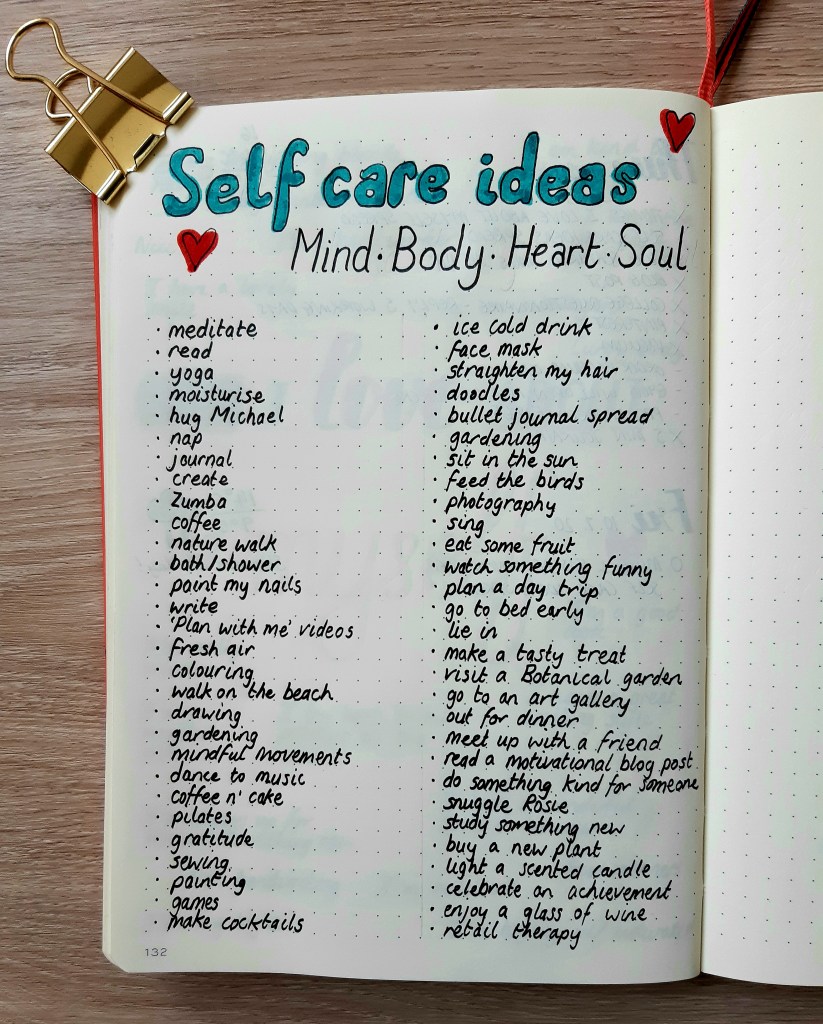 Self care ideas
Mind · Body · Heart · Soul
· meditate
· read
· yoga
· moisturise
· hug Michael
· nap
· journal
· create
· Zumba
· coffee
· nature walk
· bath/shower
· paint my nails
· write
· 'Plan with me' videos
· fresh air
· colouring
· walk on the beach
· drawing
· gardening
· mindful movements
· dance to music
· coffee n' cake
· pilates
· gratitude
· sewing
· painting
· games
· make cocktails
· ice cold drink
· face mask
· straighten my hair
· doodles
· bullet journal spread
· gardening
· sit in the sun
· feed the birds
· photography
· sing
· eat some fruit
· watch something funny
· plan a day trip
· go to bed early
· lie in
· make a tasty treat
· visit a Botanical garden
· go to an art gallery
· out for dinner
· meet up with a friend
· read a motivational blog post
· do something kind for someone
· snuggle Rosie
· study something new
· buy a new plant
· light a scented candle
· celebrate an achievement
· enjoy a glass of wine
· retail therapy
132